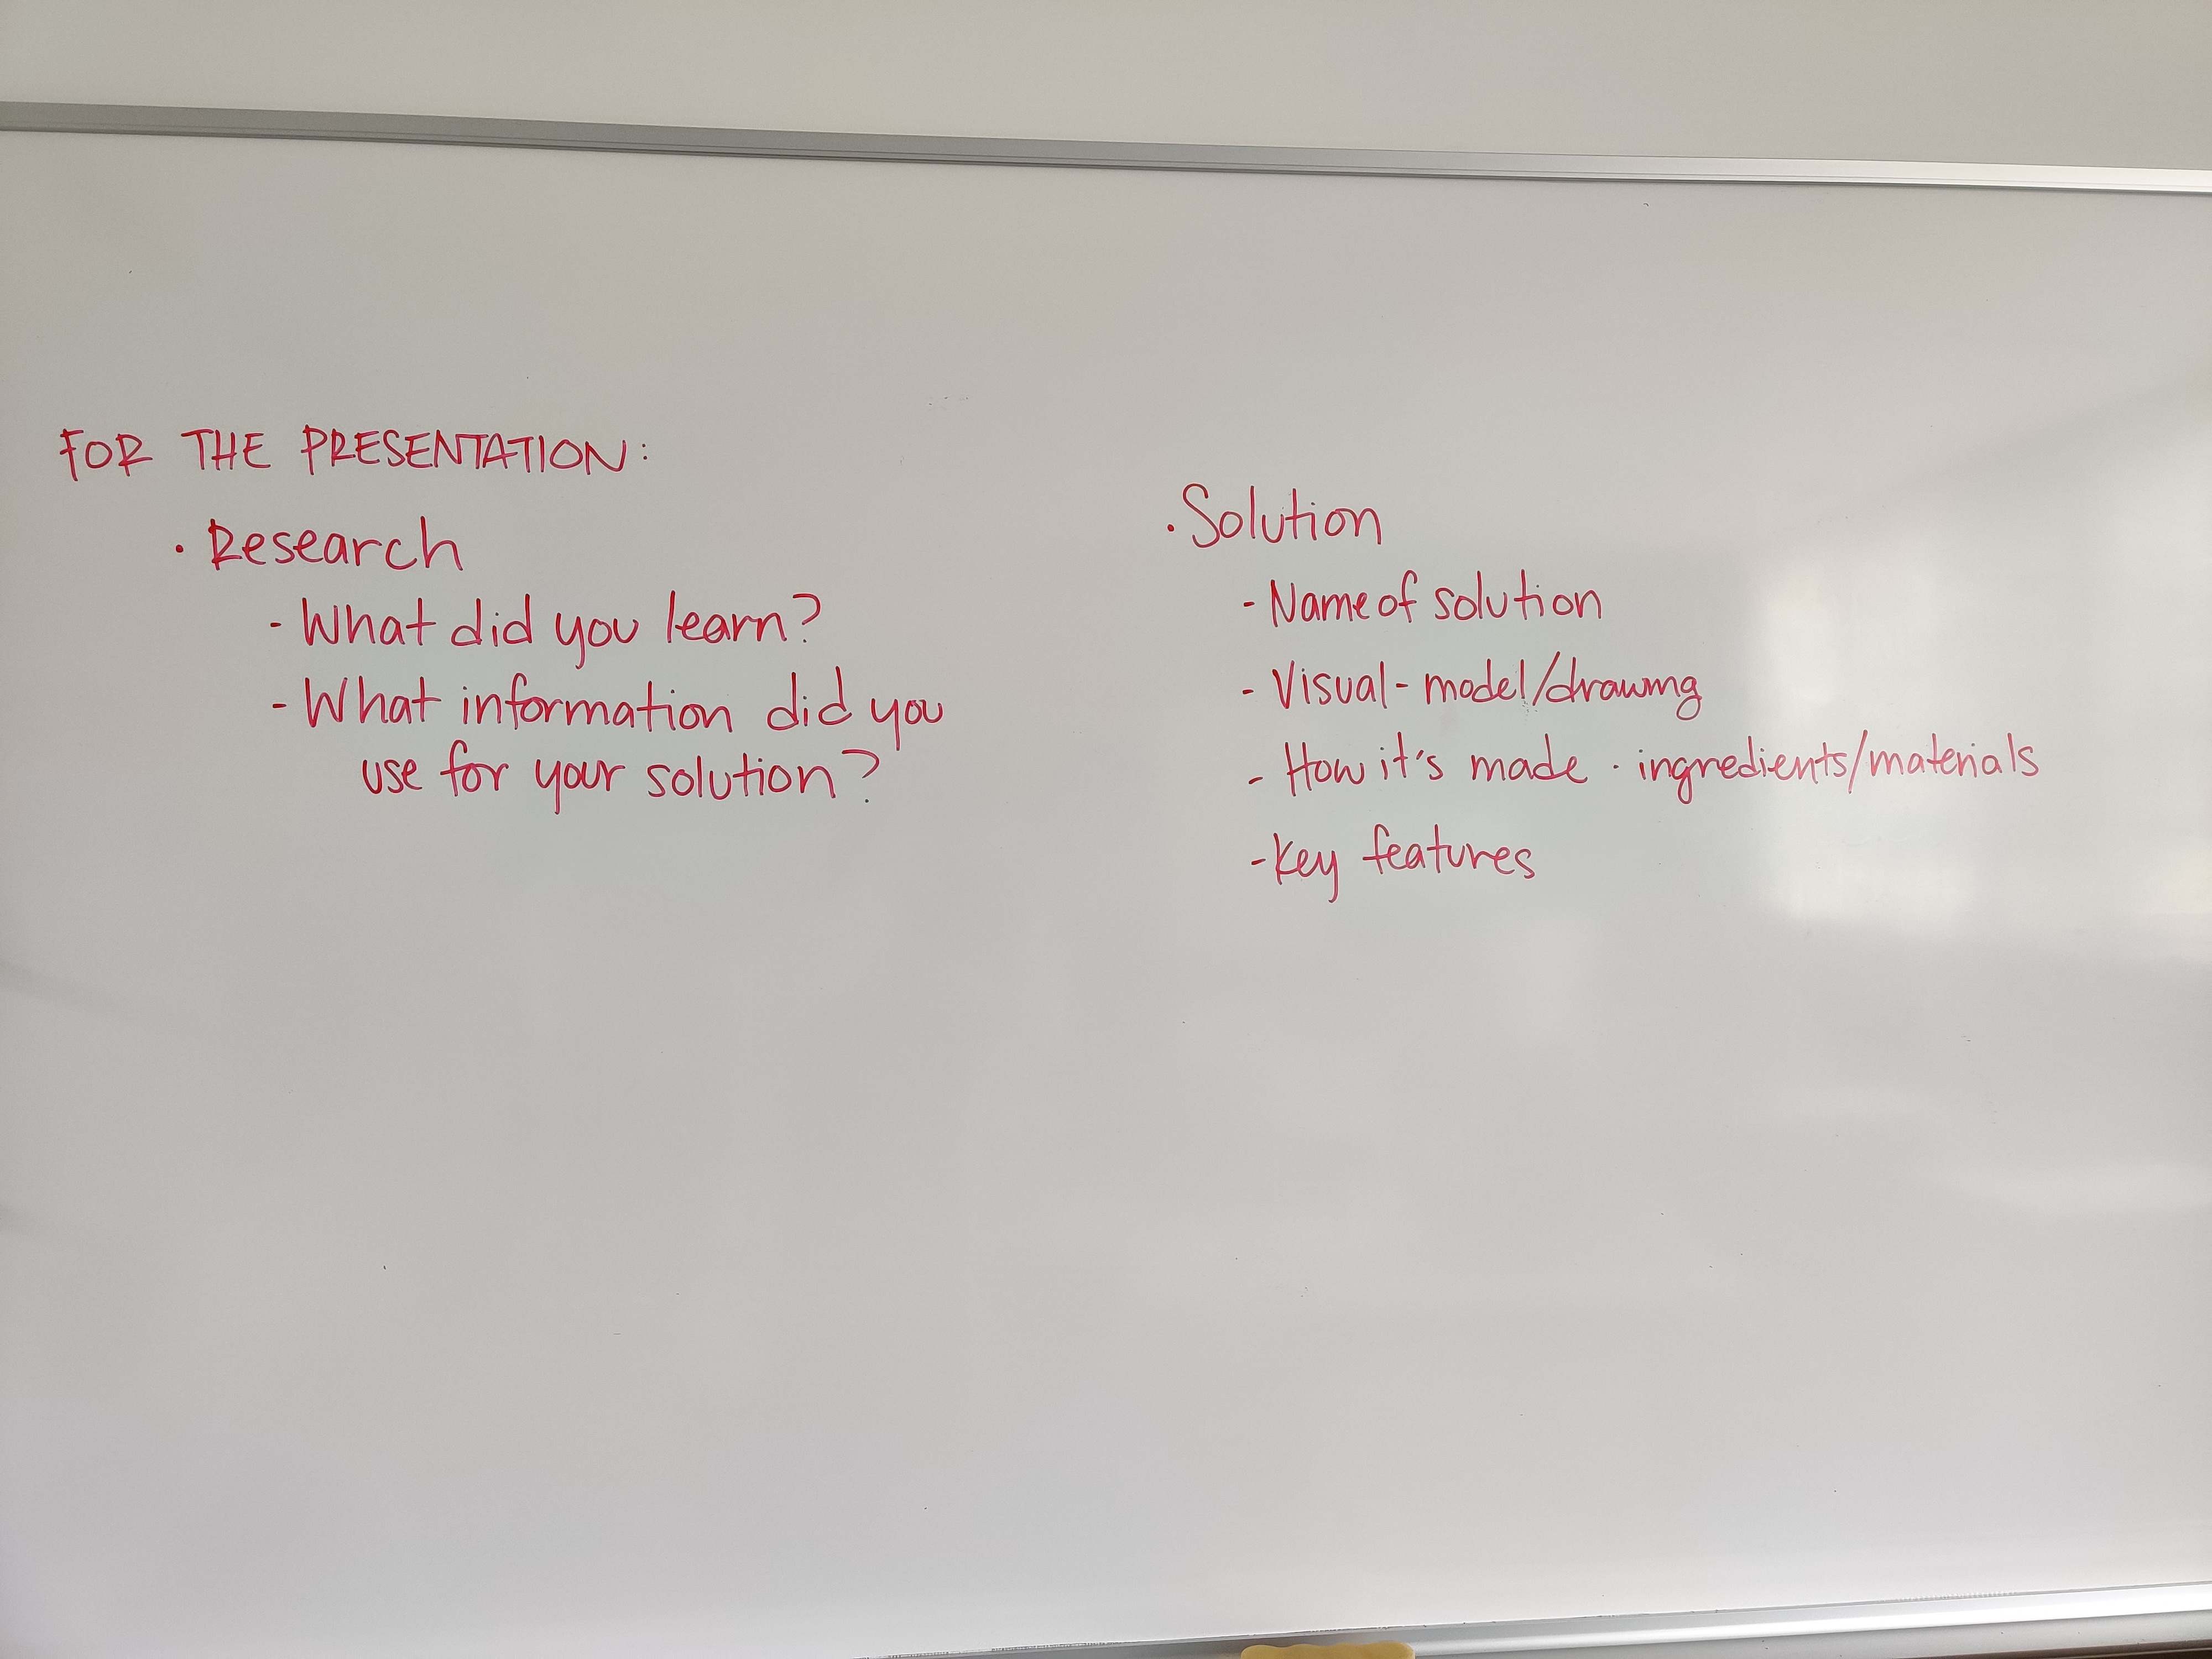 FOR THE PRESENTATION:
· Research
- What did you learn?
- What information did you
use for your solution?
· Solution
- Name of solution
- Visual - model/drawing
- How it's made · ingredients/materials
- Key features